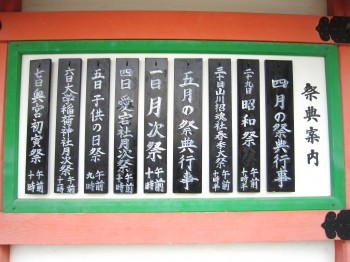 祭典案内
四月の祭典行事
二十九日 昭和祭 午前十時半
三十日 山川招魂社春季大祭 午前十時半
五月の祭典行事
一日 月次祭 午前十時
四日 愛宮社月次祭 午前十時
五日 子供の日祭 午前九時
六日 大学稲荷神社月次祭 午前十時
七日 奥宮初寅祭 午前十時